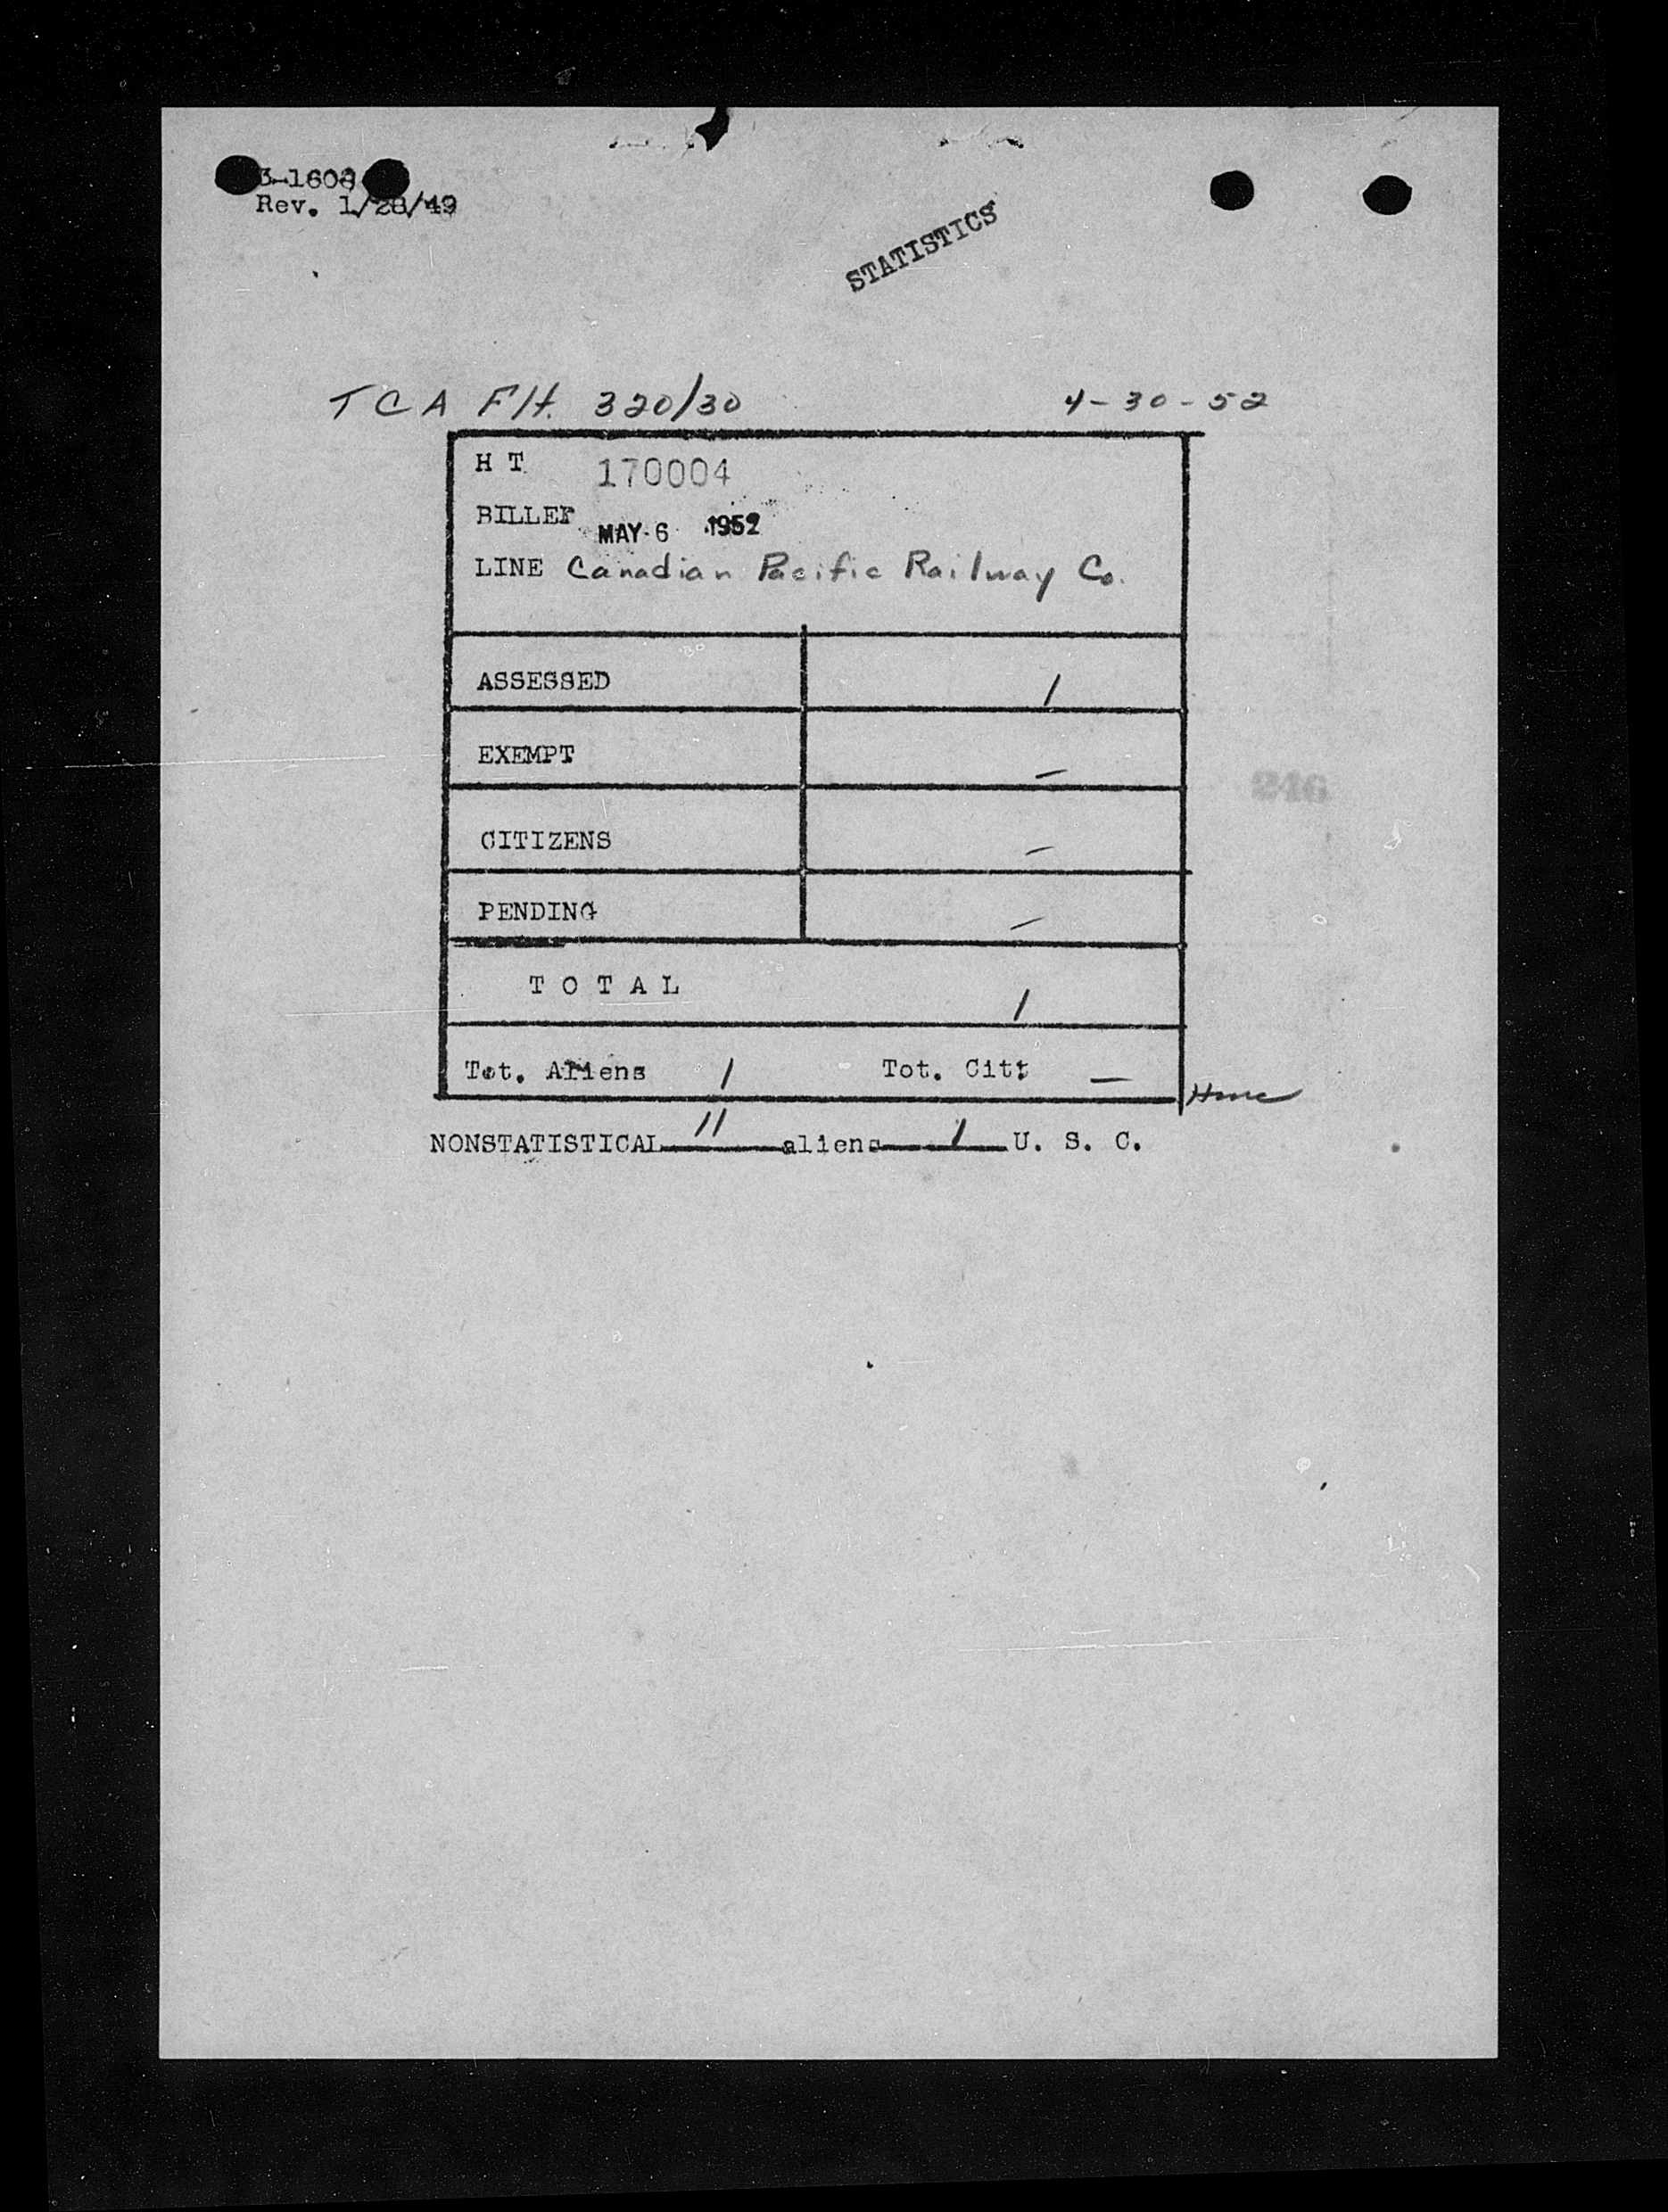 3-1608
Rev. 1/28/49
STATISTICS
TCA Flt. 320/30 4-30-52
H T 170004
BILLED MAY 6 1952
LINE Canadian Pacific Railway Co.
ASSESSED 1
EXEMPT –
CITIZENS –
PENDING –
T O T A L 1
Tot. Aliens 1 Tot. Cit: –
NONSTATISTICAL 11 aliens 1 U. S. C.
246